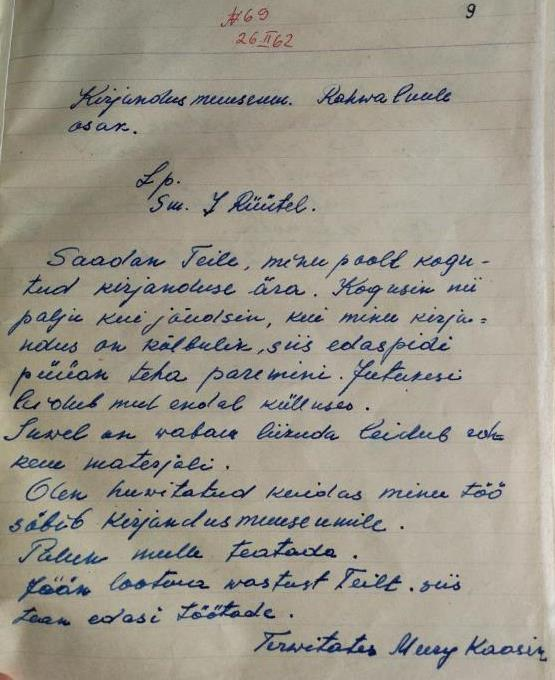 № 69
9
26 II 62
Kirjandusmuuseum. Rahwaluule
osak.
Lp.
Sm. J Rüütel.
Saadan Teile, minu poolt kogu-
tud kirjanduse ära. Kogusin nii
palju kui jõudsin, kui minu kirja=
ndus on kõlbulik, siis edaspidi
püüan teha paremini. Jutukesi
leidub mul endal külluses.
Suwel on wabam liikuda leidub roh-
kem materjali.
Olen huwitatud kuidas minu töö
sobib Kirjandusmuuseumile.
Palun mulle teatada.
Jään lootma wastust Teilt. siis
tean edasi töötada.
Terwitates Meery Kaasik